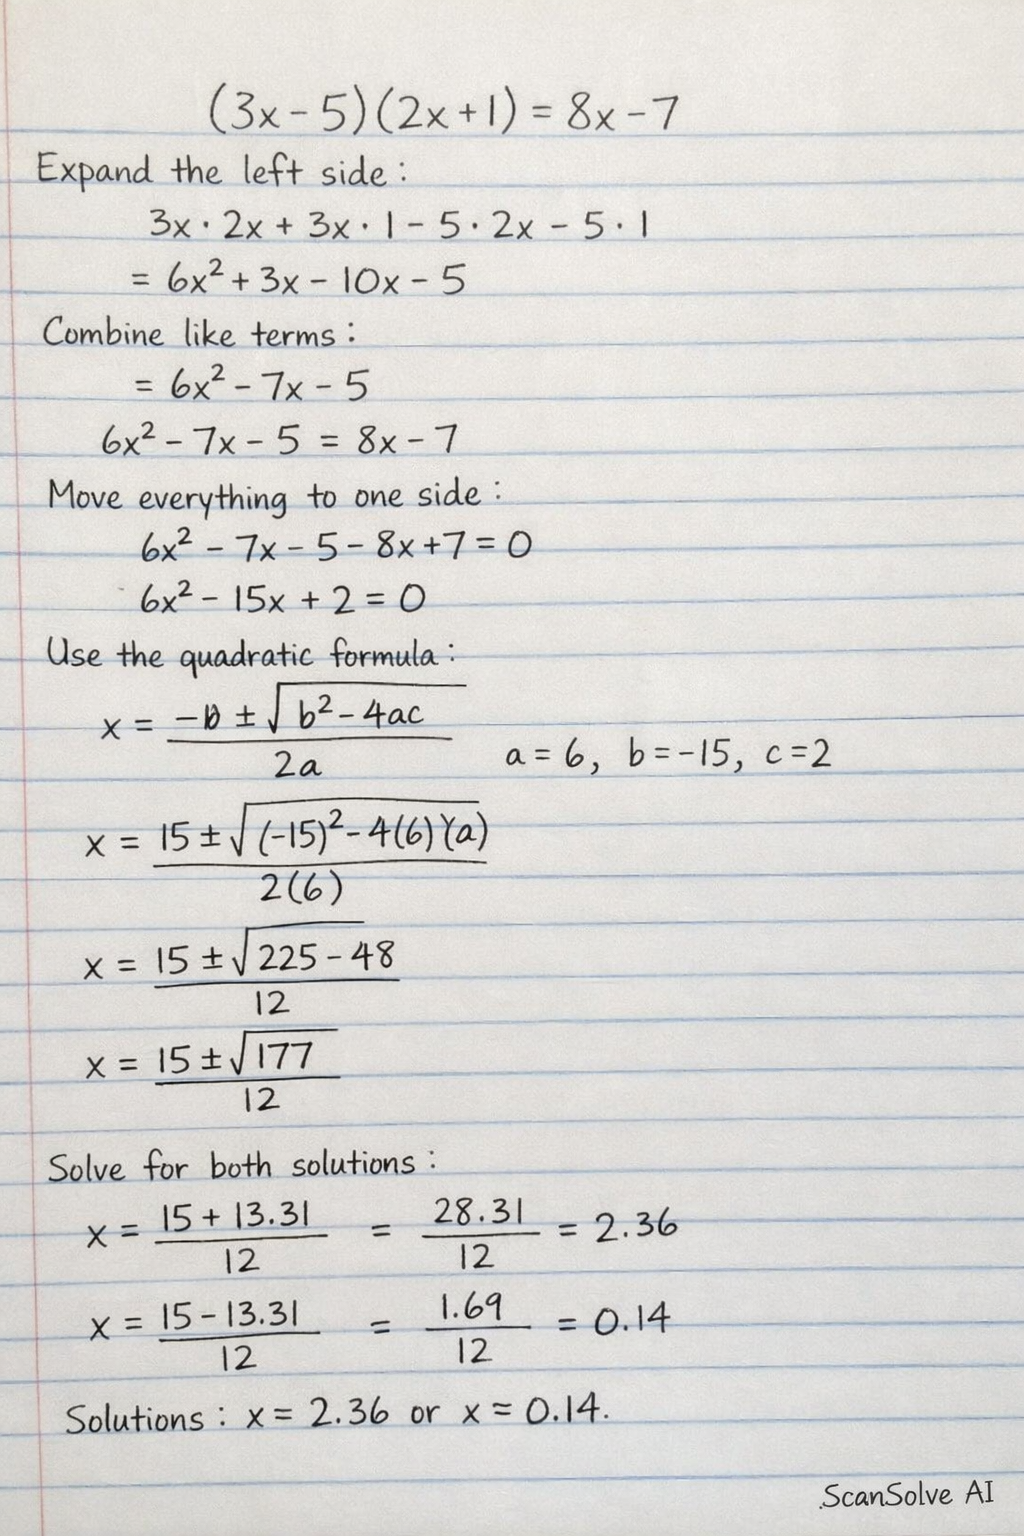 (3x - 5)(2x + 1) = 8x - 7
Expand the left side :
3x · 2x + 3x · 1 - 5 · 2x - 5 · 1
= 6x² + 3x - 10x - 5
Combine like terms :
= 6x² - 7x - 5
6x² - 7x - 5 = 8x - 7
Move everything to one side :
6x² - 7x - 5 - 8x + 7 = 0
6x² - 15x + 2 = 0
Use the quadratic formula :
x = (-b ± √(b² - 4ac)) / 2a    a = 6, b = -15, c = 2
x = 15 ± √(-15)² - 4(6)(a) / 2(6)
x = 15 ± √225 - 48 / 12
x = 15 ± √177 / 12
Solve for both solutions :
x = 15 + 13.31 / 12 = 28.31 / 12 = 2.36
x = 15 - 13.31 / 12 = 1.69 / 12 = 0.14
Solutions : x = 2.36 or x = 0.14.
ScanSolve AI